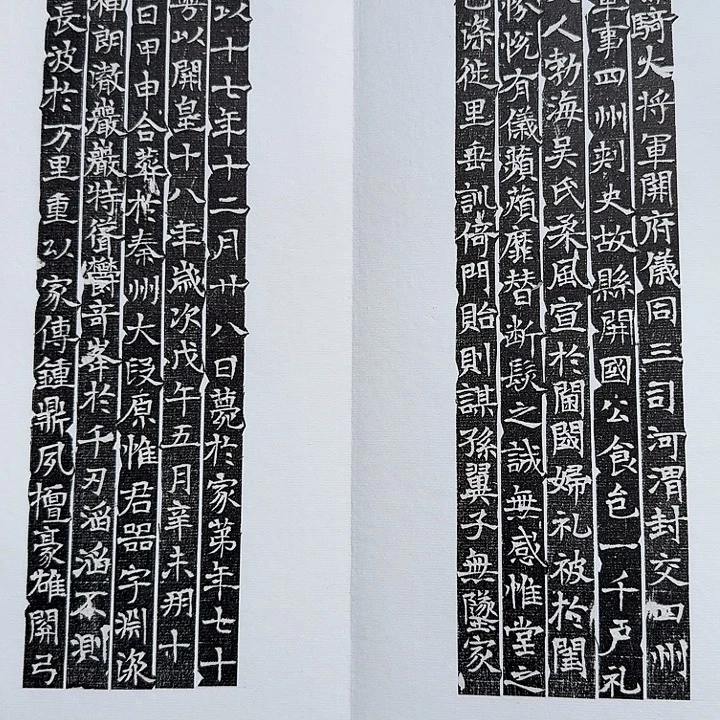 騎大將軍開府儀同三司河渭封交四州
軍事四州刺史故縣開國公食邑一千戶礼
人勃海吴氏柔風宣於閫閾婦礼被於閨
慷慨有儀蘋蘋靡替断髮之誠無感惟堂之
滌徙里垂訓倚門貽則謀孫翼子無墜家
以十七年十二月廿八日薨於家第年七十
以開皇十八年歲次戊午五月辛未朔十
日甲申合葬於秦州大段原惟君器宇淵深
神朗澈巖巖特聳鬱奇峯於千刃滔滔不測
長波於万里重以家傳鍾鼎夙檀豪雄開弓